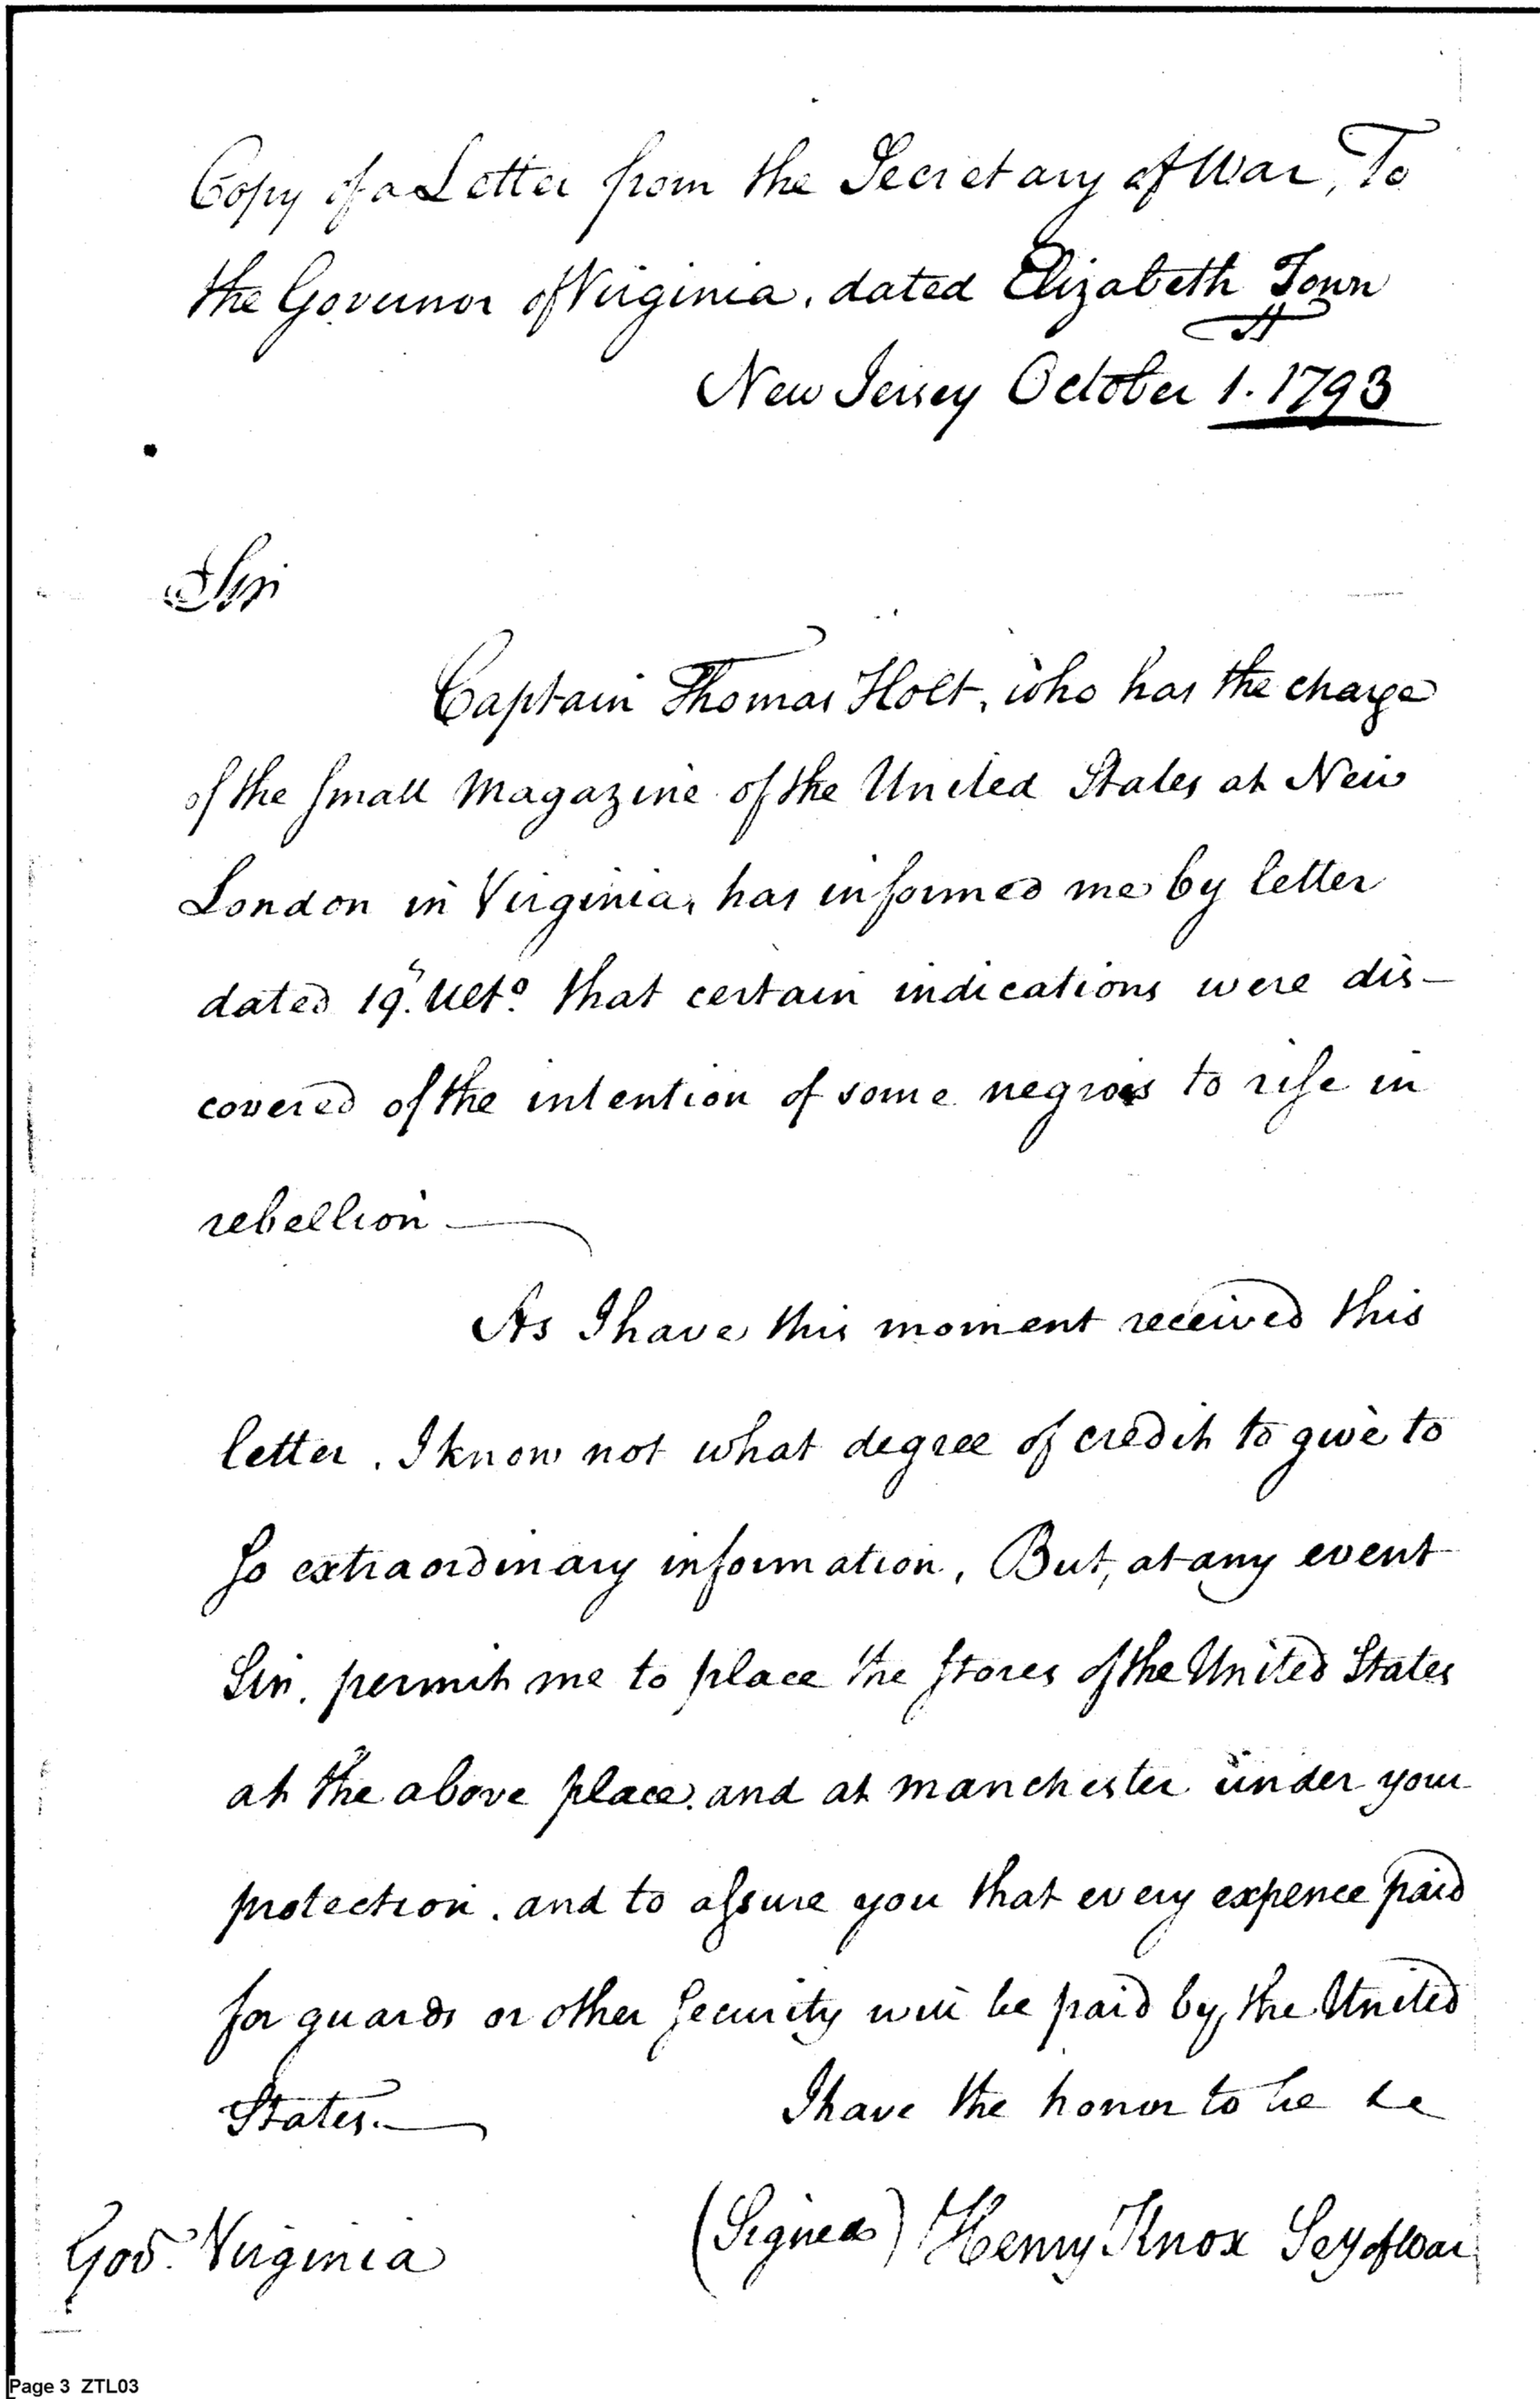 Copy of a Letter from the Secretary of War, To
the Governor of Virginia, dated Elizabeth Town
New Jersey October 1. 1793
Sir
Captain Thomas Holt, who has the charge
of the small magazine of the United States at New
London in Virginia, has informed me by letter
dated 19th. Ulto. that certain indications were dis-
covered of the intention of some negroes to rise in
rebellion —
As I have this moment received this
letter, I know not what degree of credit to give to
so extraordinary information, But, at any event
Sir, permit me to place the stores of the United States
at the above place, and at manchester under your
protection, and to assure you that every expence paid
for guards or other security will be paid by the United
States. —
I have the honor to be &c
(Signed) Henry Knox Secy of War
Govr. Virginia
Page 3 ZTL03